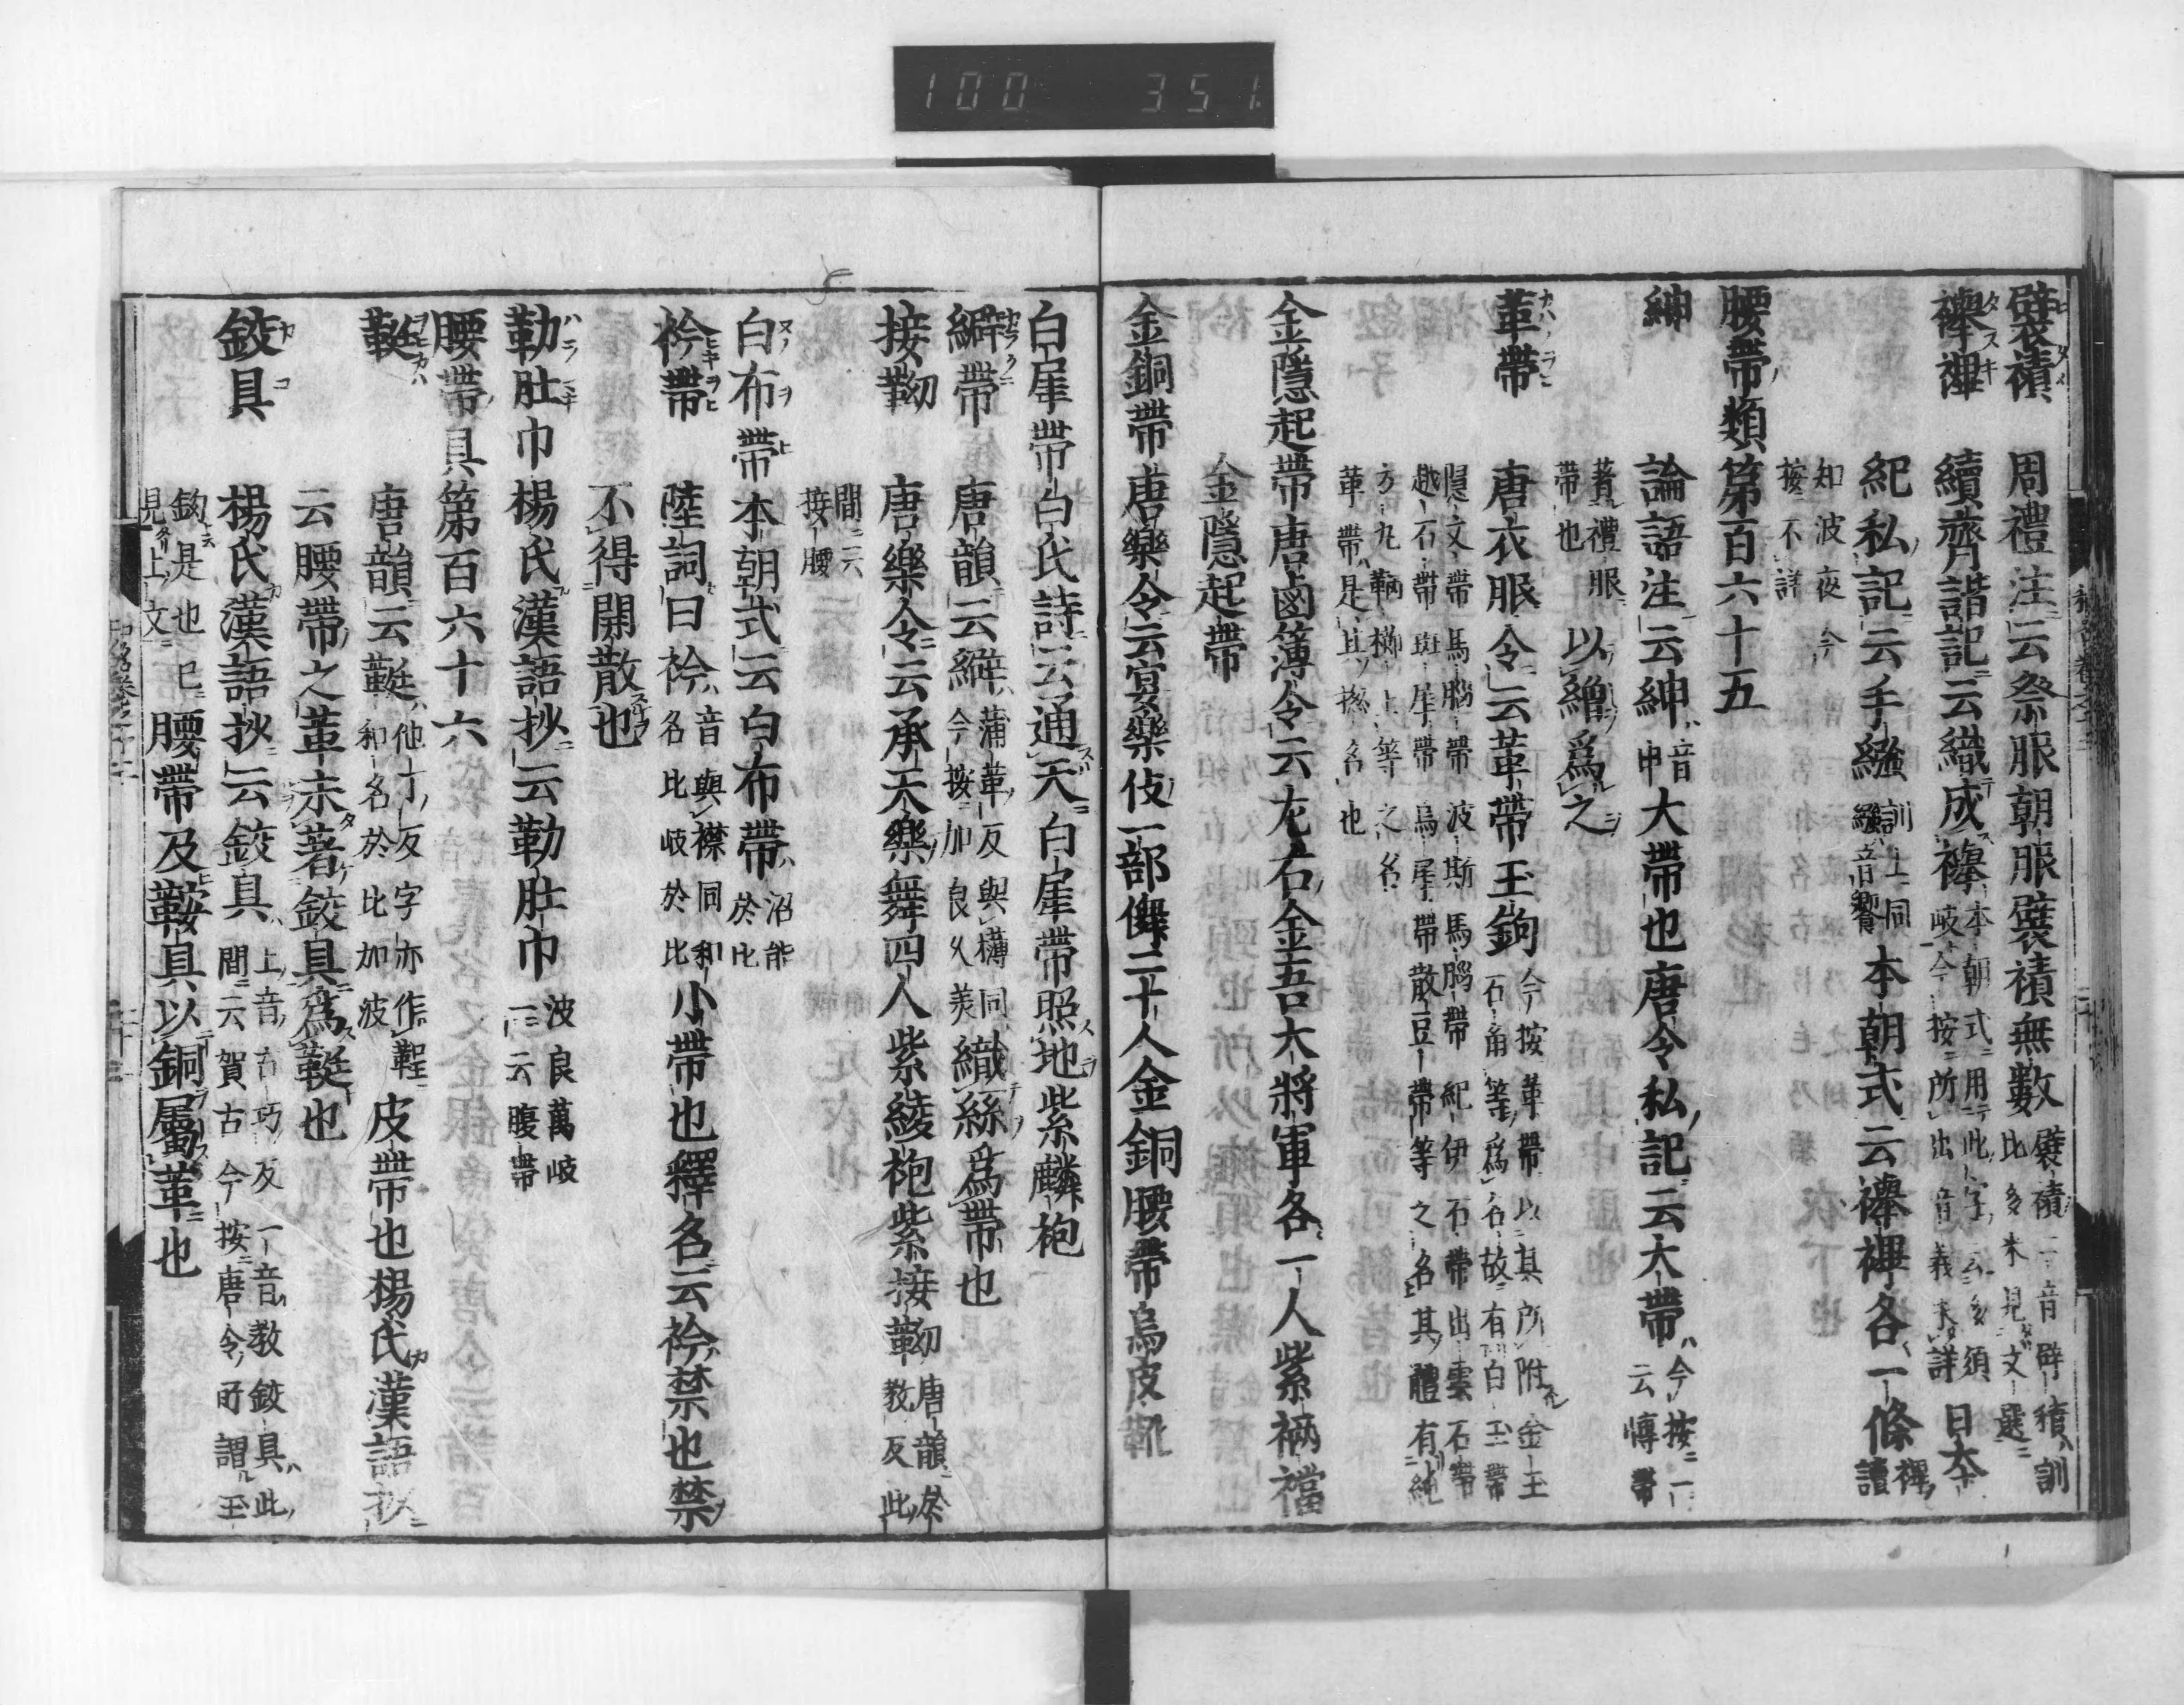 100 351
襞襀 周禮注云祭服朝服襞襀無數 襞襀二音辟積訓
比多米見文選
襷襅 續齊諧記云織成襷 本朝式用此字云多須
岐今按所出音義未詳 日本
紀私記云手繦 訓上同
繦音響 本朝式云襷襅各一條 襅讀
知波夜今
按不詳
腰帶類第百六十五
紳 論語注云紳 音
申 大帶也唐令私記云大帶 今按一
云博帶
著禮服
帶也 以繒爲之
革帶 唐衣服令云革帶玉鉤 今按革帶以其所附金玉
石角等爲名故有白玉帶
隱文帶馬腦帶波斯馬腦帶紀伊石帶出雲石帶
越石帶斑犀帶烏犀帶散豆帶等之名其體有純
方丸鞆櫛上等之名
革帶是其惣名也
金隱起帶 唐鹵簿令云左右金吾大將軍各一人紫裲襠
金隱起帶
金銅帶 唐樂令云宴樂伎一部儛二十人金銅腰帶烏皮靴
白犀帶 白氏詩云通天白犀帶照地紫麟袍
繲帶 唐韻云繲 蒲革反與欂同
今按加良久美 織絲爲帶也
接靿 唐樂令云承天樂舞四人紫綾袍紫接靿 唐韻於
教反此
間云
接腰
白布帶 本朝式云白布帶 沼能
於比
衿帶 陸詞曰衿 音與襟同和
名比岐於比 小帶也釋名云衿禁也禁
不得開散也
勒肚巾 楊氏漢語抄云勒肚巾 波良萬岐
一云腹帶
腰帶具第百六十六
鞓 唐韻云鞓 他丁反字亦作䩠
和名於比加波 皮帶也楊氏漢語抄
云腰帶之革未著鉸具爲鞓也
鉸具 楊氏漢語抄云鉸具 上音古巧反一音教鉸具此
間云賀古今按唐令所謂玉
鉤是也已
見上文 腰帶及鞍具以銅屬革也